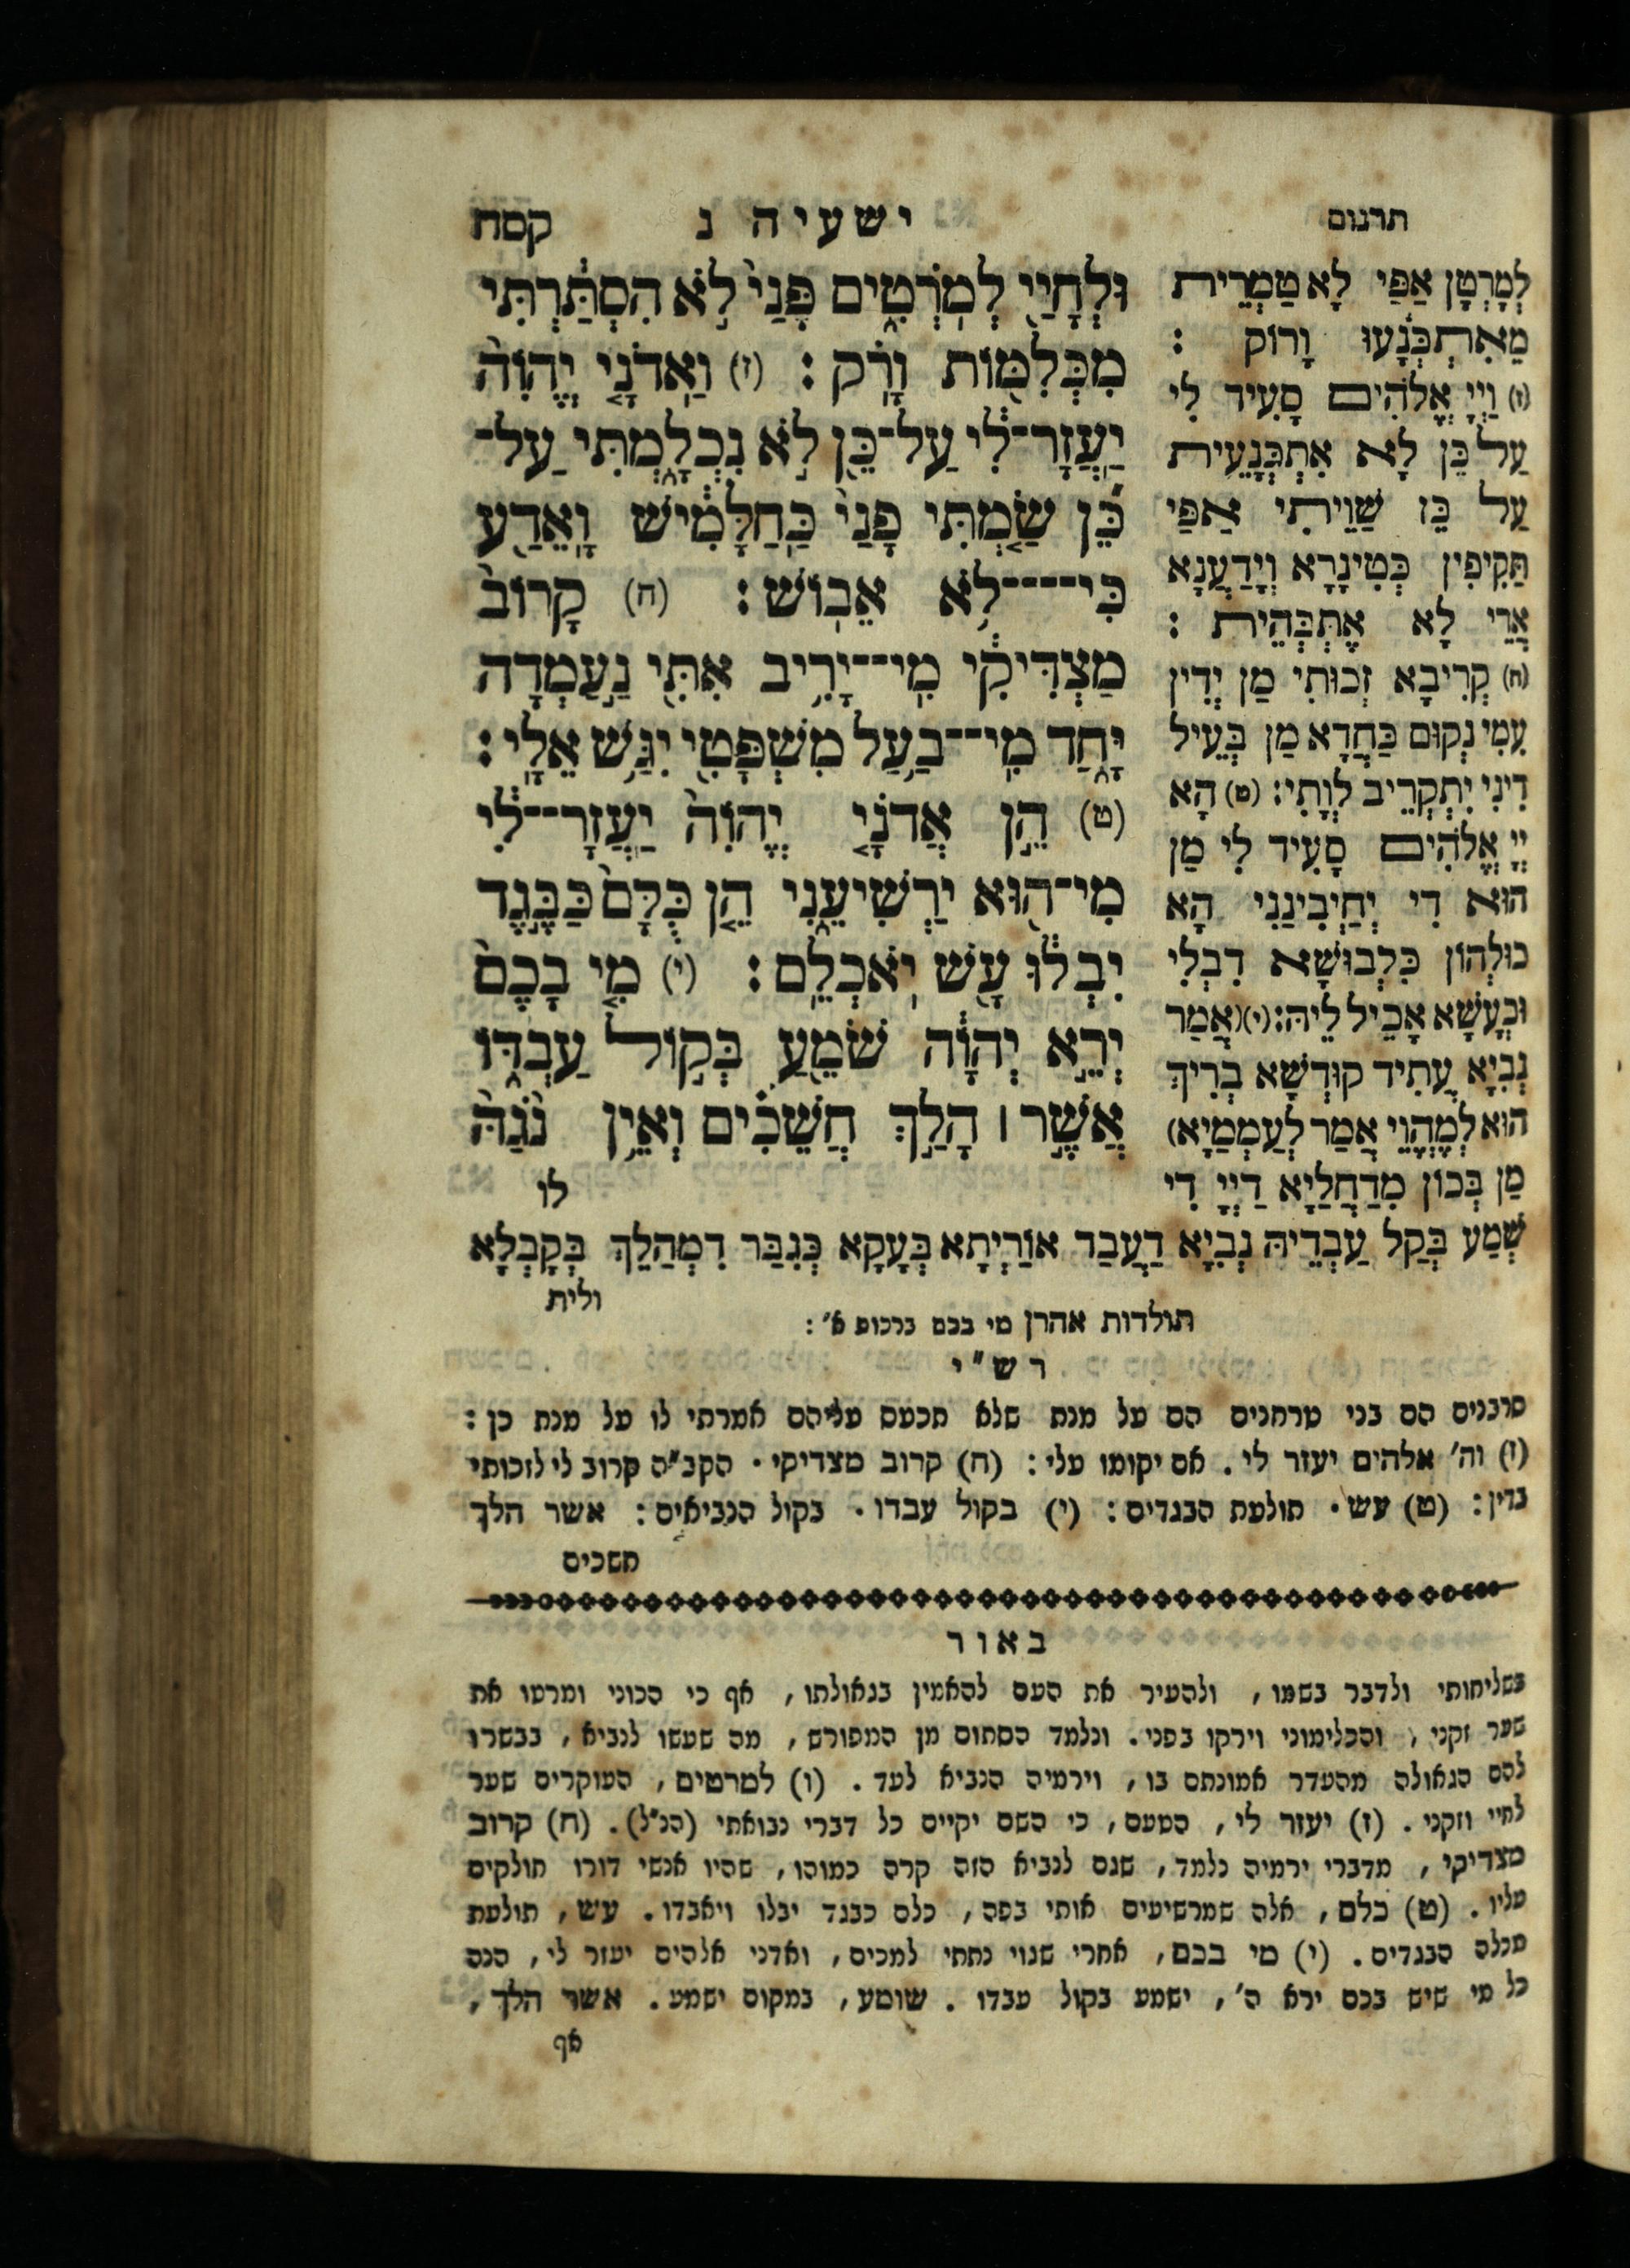 תרגום
ישעיה נ
קסח
לְמָרְטָן אַפַּי לָא טַמְרֵית
מֵאִתְכְּנָעוּ וָרוֹק :
(ז) וַייָ אֱלֹהִים סָעִיד לִי
עַל כֵּן לָא אִתְכְּנָעֵית
עַל כֵּן שַׁוֵיתִי אַפַּי
תַּקִיפִין כְּטִינָרָא וְיָדַעֲנָא
אֲרֵי לָא אֶתְבְּהֵית :
(ח) קְרִיבָא זְכוּתִי מַן יְדִין
עִמִי נְקוּם כַּחֲדָא מַן בְּעֵיל
דִינִי יִתְקְרֵיב לְוָתִי: (ט) הָא
יְיָ אֱלֹהִים סָעִיד לִי מַן
הוּא דִי יְחַיְבִינַנִי הָא
כוּלְהוֹן כִּלְבוּשָׁא דִבְלִי
וּבְעָשָׁא אָכִיל לֵיהּ: (י) (אֲמַר
נְבִיָא עֲתִיד קוּדְשָׁא בְרִיךְ
הוּא לְמֶהֱוֵי אֲמַר לְעַמְמַיָא)
מַן בְּכוֹן מִדַחֲלַיָא דַייָ דִי
שְׁמַע בְּקַל עַבְדֵיהּ נְבִיָא דַעֲבַד אוֹרַיְתָא בְּעָקָא כְּגְבַר דִמְהַלֵךְ בְּקַבְלָא
ולית
וּלְחָיַי לְמֹרְטִים פָּנַי לֹא הִסְתַּרְתִּי
מִכְּלִמּוֹת וָרֹק : (ז) וַאדֹנָי יֱהֹוִה
יַעֲזָר־לִי עַל־כֵּן לֹא נִכְלָמְתִּי עַל־
כֵּן שַׂמְתִּי פָנַי כַּחַלָּמִישׁ וָאֵדַע
כִּי־לֹא אֵבוֹשׁ : (ח) קָרוֹב
מַצְדִּיקִי מִי־יָרִיב אִתִּי נַעַמְדָה
יָּחַד מִי־בַעַל מִשְׁפָּטִי יִגַּשׁ אֵלָי :
(ט) הֵן אֲדֹנָי יֱהֹוִה יַעֲזָר־לִי
מִי־הוּא יַרְשִׁיעֵנִי הֵן כֻּלָּם כַּבֶּגֶד
יִבְלוּ עָשׁ יֹאכְלֵם : (י) מִי בָכֶם
יְרֵא יְהֹוָה שֹׁמֵעַ בְּקוֹל עַבְדּוֹ
אֲשֶׁר ׀ הָלַךְ חֲשֵׁכִים וְאֵין נֹגַהּ
לו
תולדות אהרן מי בכם ברכות א׳ :
רש״י
סרבנים הם בני טרחנים הם על מנת שלא תכעס עליהם אמרתי לו על מנת כן :
(ז) וה׳ אלהים יעזר לי . אם יקומו עלי : (ח) קרוב מצדיקי . הקב״ה קרוב לי לזכותי
בדין : (ט) עש . תולעת הבגדים : (י) בקול עבדו . בקול הנביאים : אשר הלך
חשכים
באור
בשליחותי ולדבר בשמו , ולהעיר את העם להאמין בגאולתו , אף כי הכוני ומרטו את
שער זקני , והכלימוני וירקו בפני . ונלמד הסתום מן המפורש , מה שעשו לנביא , בבשרו
להם הגאולה מהעדר אמונתם בו , וירמיה הנביא לעד . (ו) למרטים , העוקרים שער
לחיי וזקני . (ז) יעזר לי , הטעם , כי השם יקיים כל דברי נבואתי (הנ״ל) . (ח) קרוב
מצדיקי , מדברי ירמיה נלמד , שגם לנביא הזה קרה כמוהו , שהיו אנשי דורו חולקים
עליו . (ט) כלם , אלה שמרשיעים אותי בפה , כלם כבגד יבלו ויאבדו . עש , תולעת
מכלה הבגדים . (י) מי בכם , אחרי שגוי נתתי למכים , ואדני אלהים יעזר לי , הנה
כל מי שיש בכם ירא ה׳ , ישמע בקול עבדו . שומע , במקום ישמע . אשר הלך ,
אף